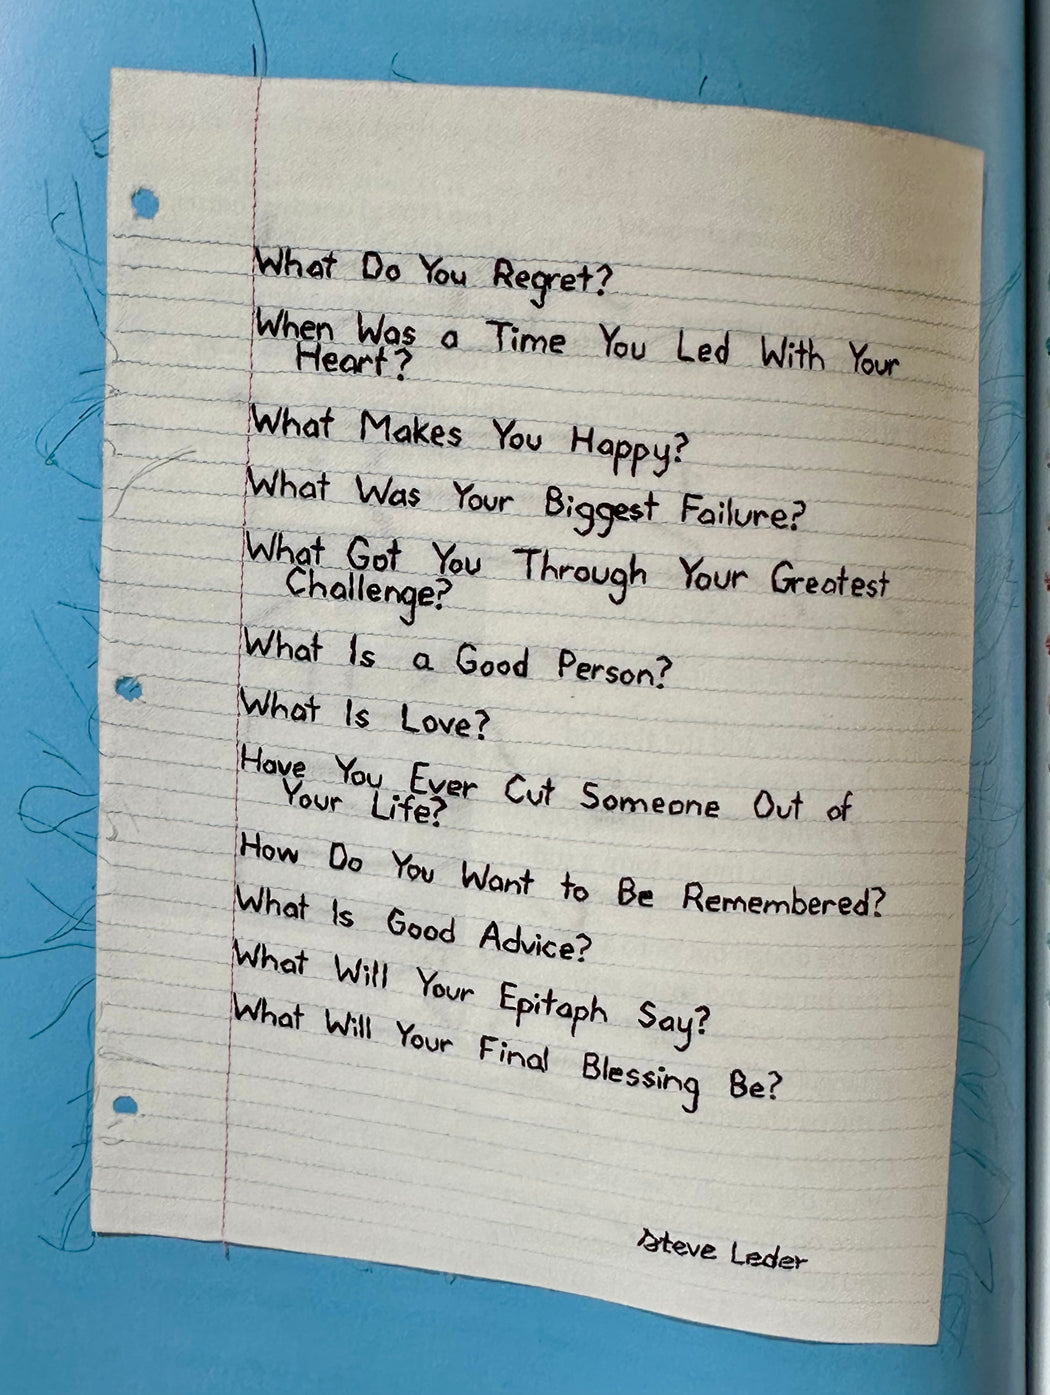 What Do You Regret?
When Was a Time You Led With Your
Heart?
What Makes You Happy?
What Was Your Biggest Failure?
What Got You Through Your Greatest
Challenge?
What Is a Good Person?
What Is Love?
Have You Ever Cut Someone Out of
Your Life?
How Do You Want to Be Remembered?
What Is Good Advice?
What Will Your Epitaph Say?
What Will Your Final Blessing Be?
Steve Leder